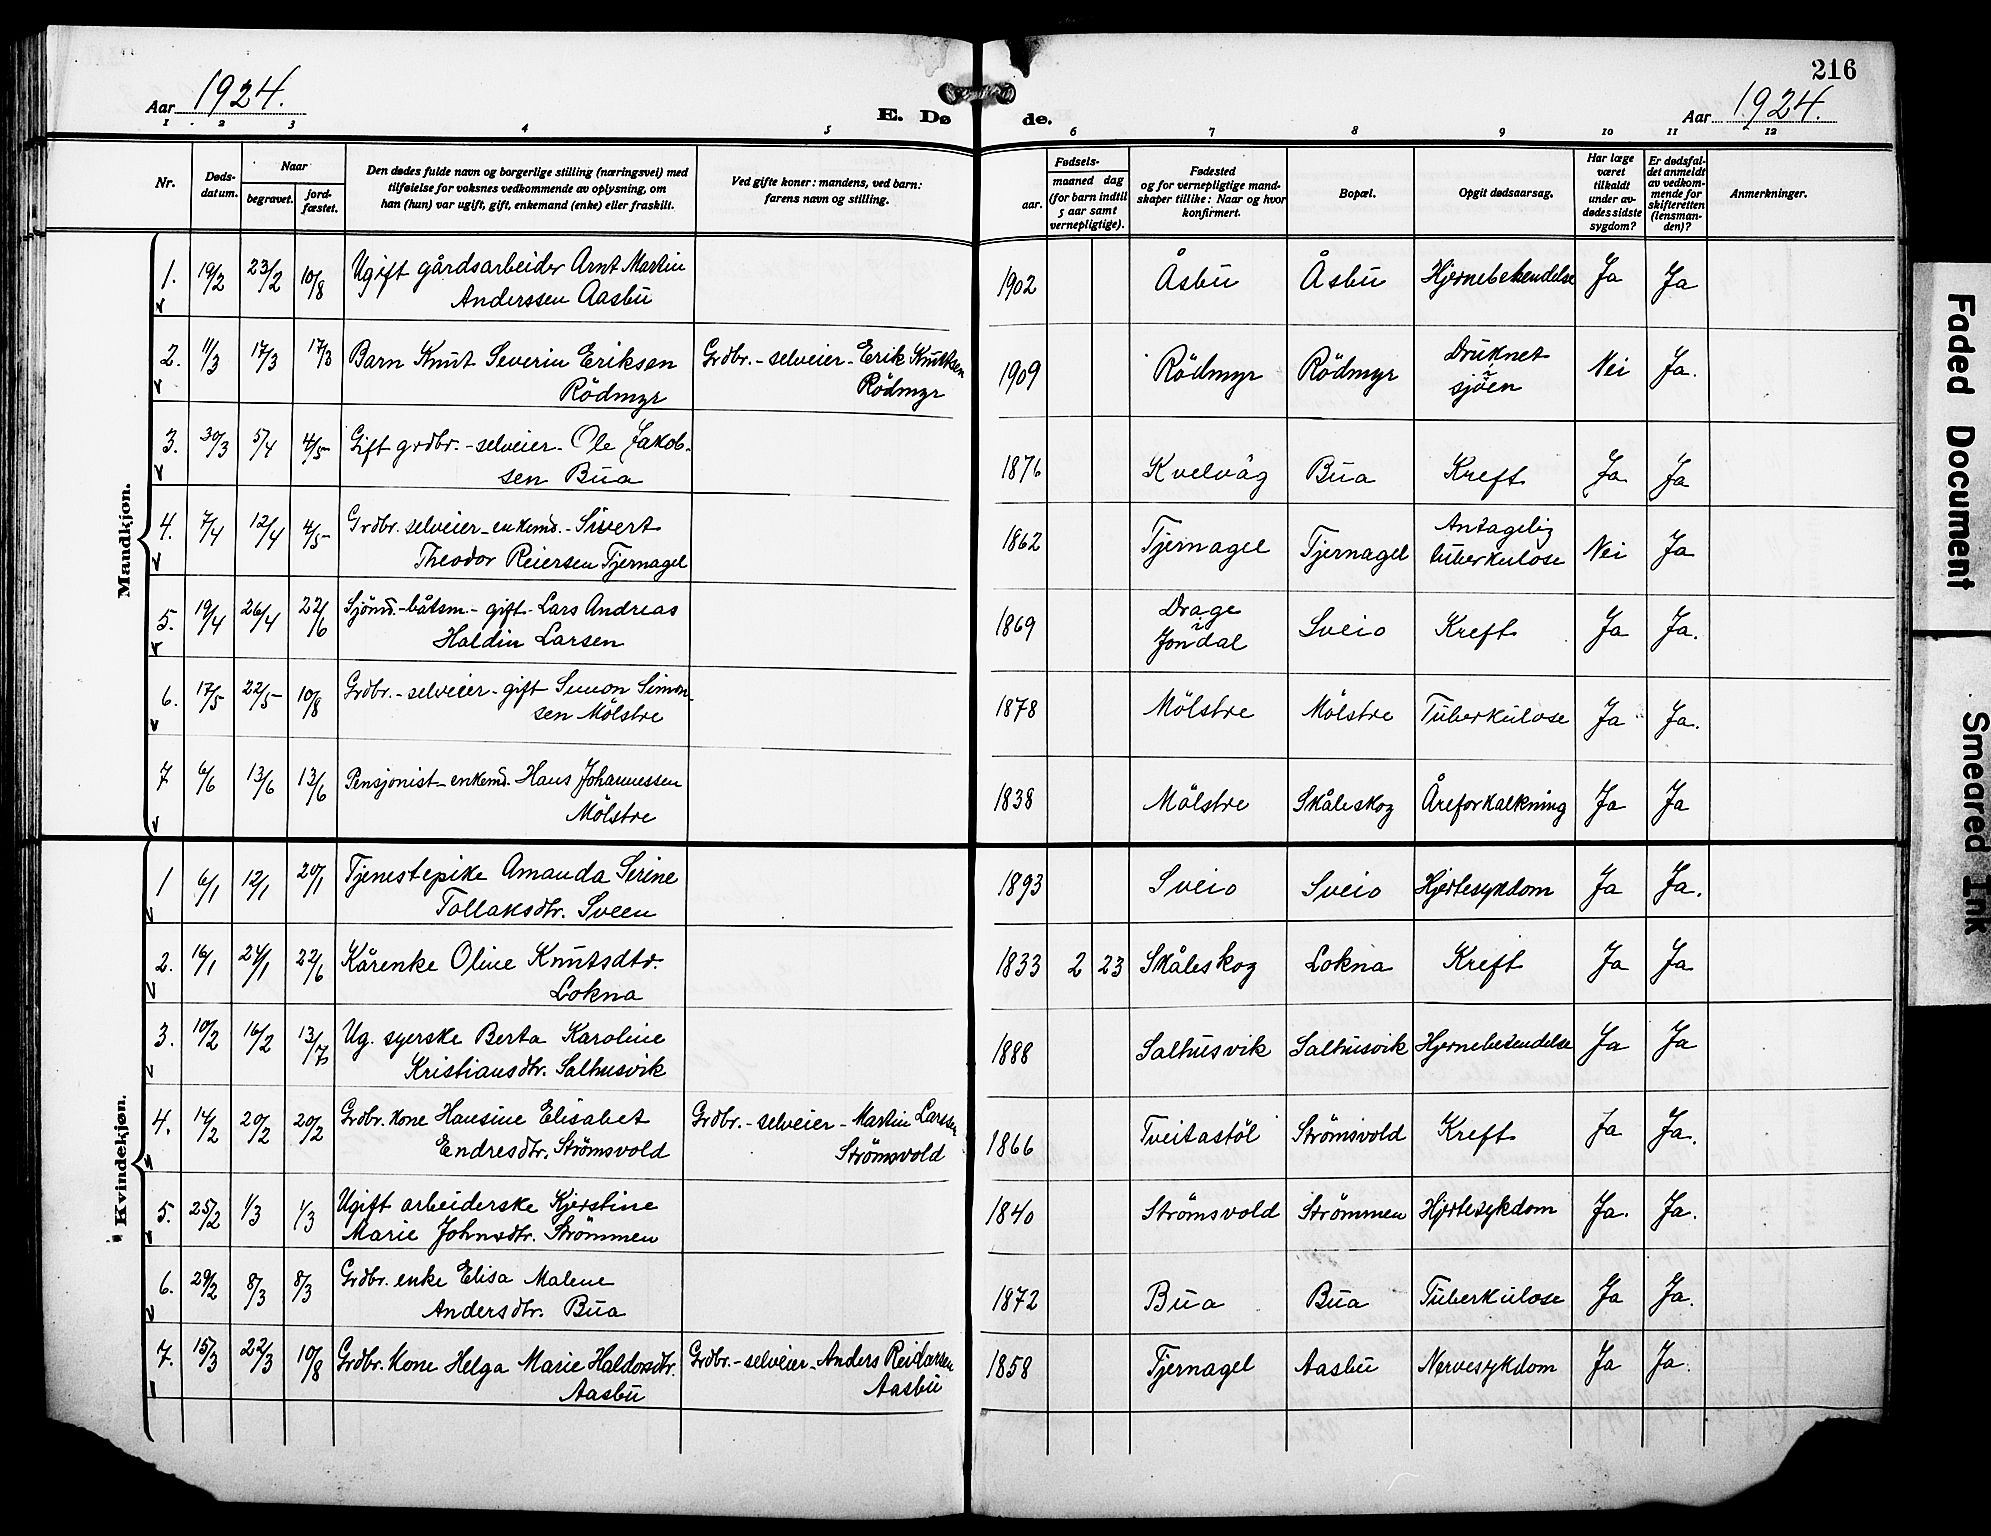 216
Aar 1924.
E. Døde.
Aar 1924.
1 2 3 4 5 6 7 8 9 10 11 12
Nr.
Døds-
datum.
Naar
begravet.
jord-
fæstet.
Den dødes fulde navn og borgerlige stilling (næringsvei) med
tilføielse for voksnes vedkommende av oplysning, om
han (hun) var ugift, gift, enkemand (enke) eller fraskilt.
Ved gifte koner: mandens, ved barn:
farens navn og stilling.
Fødsels-
aar.
maaned dag
(for barn indtil
5 aar samt
vernepligtige).
Fødested
og for vernepligtige mand-
skaper tillike: Naar og hvor
konfirmert.
Bopæl.
Opgit dødsaarsag.
Har læge
været
tilkaldt
under av-
dødes sidste
sygdom?
Er dødsfal-
det anmeldt
av vedkom-
mende for
skifteretten
(lensman-
den)?
Anmerkninger.
Mandkjøn.
1. 19/2 23/2 10/8 Ugift gårdsarbeider Arnt Martin 1902 Åsbu Åsbu Hjernebetendelse Ja Ja
Anderssen Aasbu
2. 11/3 17/3 17/3 Barn Knut Severin Eriksen Grdbr.-selveier-Erik Knutsen 1909 Rödmyr Rödmyr Druknet Nei Ja.
Rödmyr Rödmyr i
sjöen
3. 30/3 5/4 4/5 Gift grdbr.-selveier-Ole Jakob- 1876 Kvelvåg Bua Kreft Ja Ja
sen Bua
4. 7/4 12/4 4/5 Grdbr. selveier-enkemd.-Sivert 1862 Tjernagel Tjernagel Antagelig Nei Ja
Theodor Reiersen Tjernagel tuberkulose
5. 19/4 26/4 22/6 Sjömd.-båtsm.-gift-Lars Andreas 1869 Drage Sveio Kreft Ja Ja.
Haldin Larsen i
Jondal
6. 17/5 22/5 10/8 Grdbr.-selveier-gift Simon Simon- 1878 Mölstre Mölstre Tuberkulose Ja Ja.
sen Mölstre
7 6/6 13/6 13/6 Pensjonist-enkemd. Hans Johannessen 1838 Mölstre Skåleskog Åreforkalkning Ja Ja
Mölstre
Kvindekjøn.
1 6/1 12/1 20/1 Tjenestepike Amanda Serine 1893 Sveio Sveio Hjertesykdom Ja Ja.
Tollaksdtr. Sveen
2. 16/1 24/1 22/6 Kårenke Oline Knutsdtr. 1833 2 23 Skåleskog Lokna Kreft Ja Ja
Lokna
3. 10/2 16/2 13/7 Ug. syerske Berta Karoline 1888 Salhusvik Salhusvik Hjernebetendelse Ja Ja
Kristiansdtr. Salhusvik
4. 14/2 20/2 20/2 Grdbr. kone Hansine Elisabet Grdbr.-selveier-Martin Larssen 1866 Tveitastöl Strömsvold Kreft Ja Ja.
Endresdtr. Strömsvold Strömsvold
5. 25/2 1/3 1/3 Ugift arbeiderske Kjerstine 1840 Strömsvold Strömmen Hjertesykdom Ja. Ja.
Marie Johnsdtr. Strömmen
6. 29/2 8/3 8/3 Grdbr. enke Elisa Malene 1872 Bua Bua Tuberkulose Ja Ja.
Andersdtr. Bua
7. 15/3 22/3 10/8 Grdbr. kone Helga Marie Haldorsdtr. Grdbr.-selveier-Anders Reidarsen 1858 Tjernagel Aasbu Nervesykdom Ja Ja.
Aasbu Aasbu
Faded Document
Smeared Ink